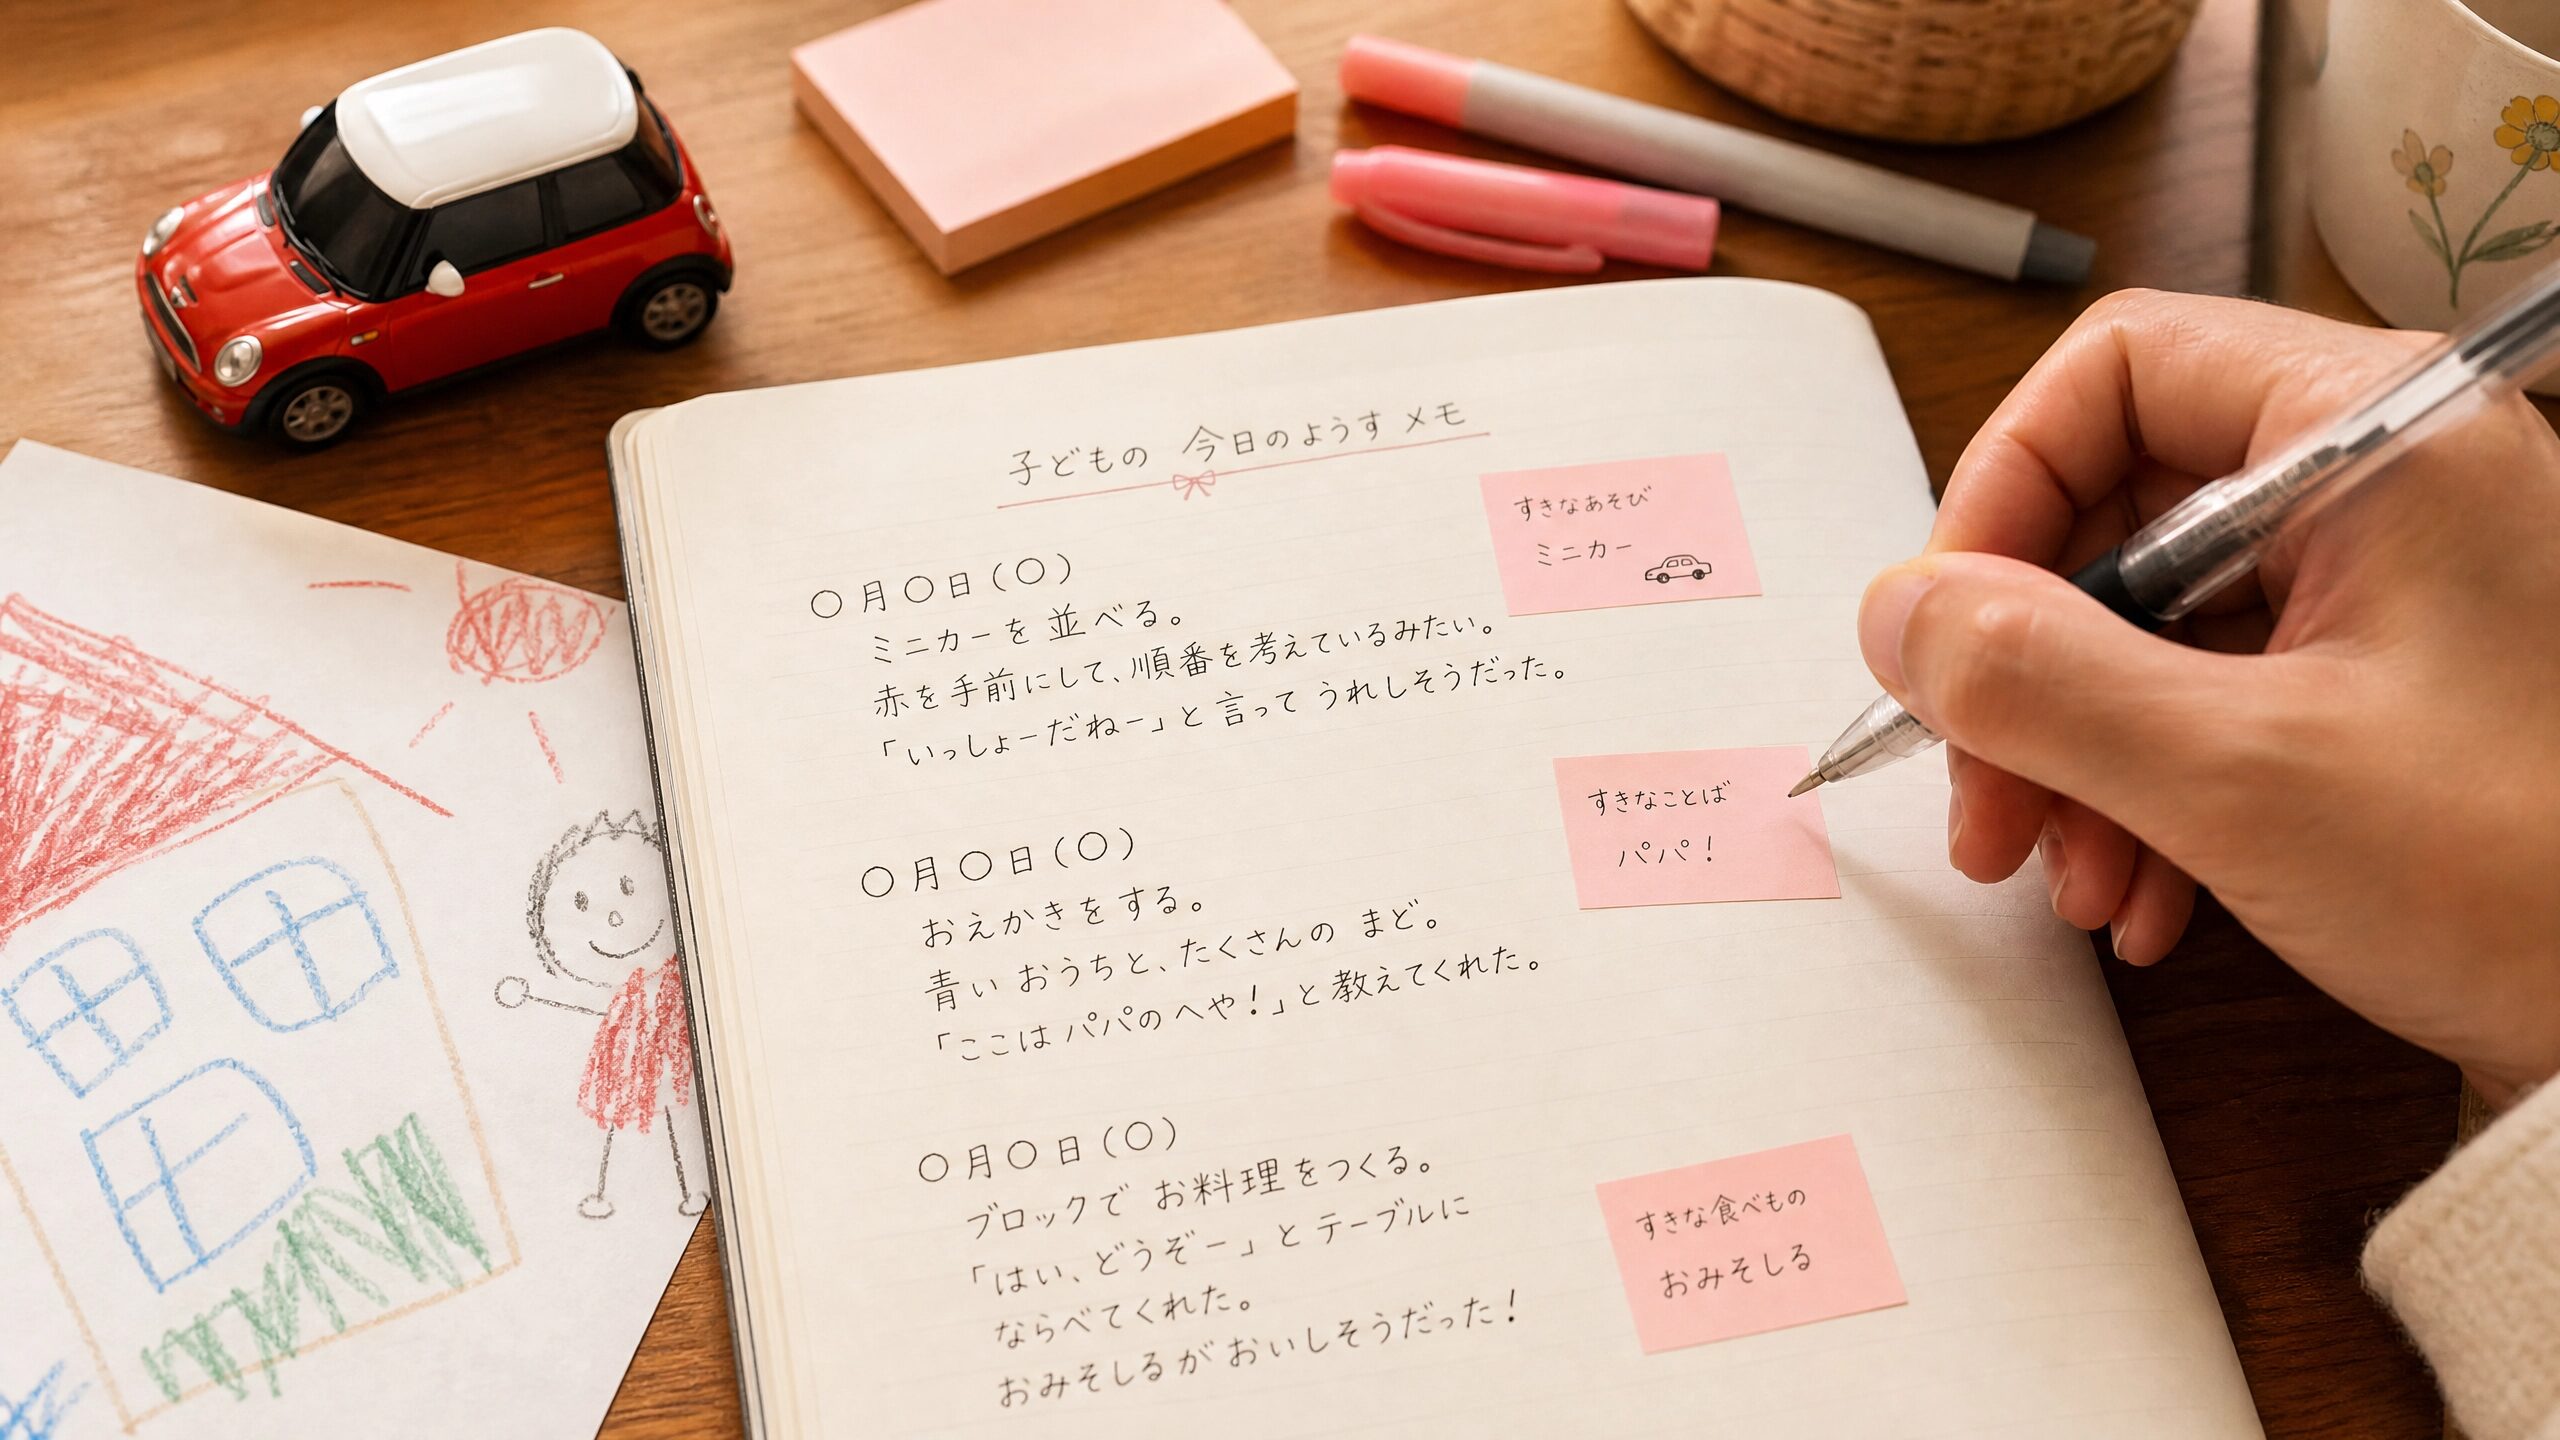 子どもの 今日のようす メモ
〇月〇日(〇)
ミニカーを並べる。
赤を手前にして、順番を考えているみたい。
「いっしょーだねー」と言って うれしそうだった。
すきなあそび
ミニカー
〇月〇日(〇)
おえかきをする。
青い おうちと、たくさんの まど。
「ここは パパの へや!」と教えてくれた。
すきなことば
パパ!
〇月〇日(〇)
ブロックで お料理をつくる。
「はい、どうぞー」と テーブルに
ならべてくれた。
おみそしるが おいしそうだった!
すきな食べもの
おみそしる